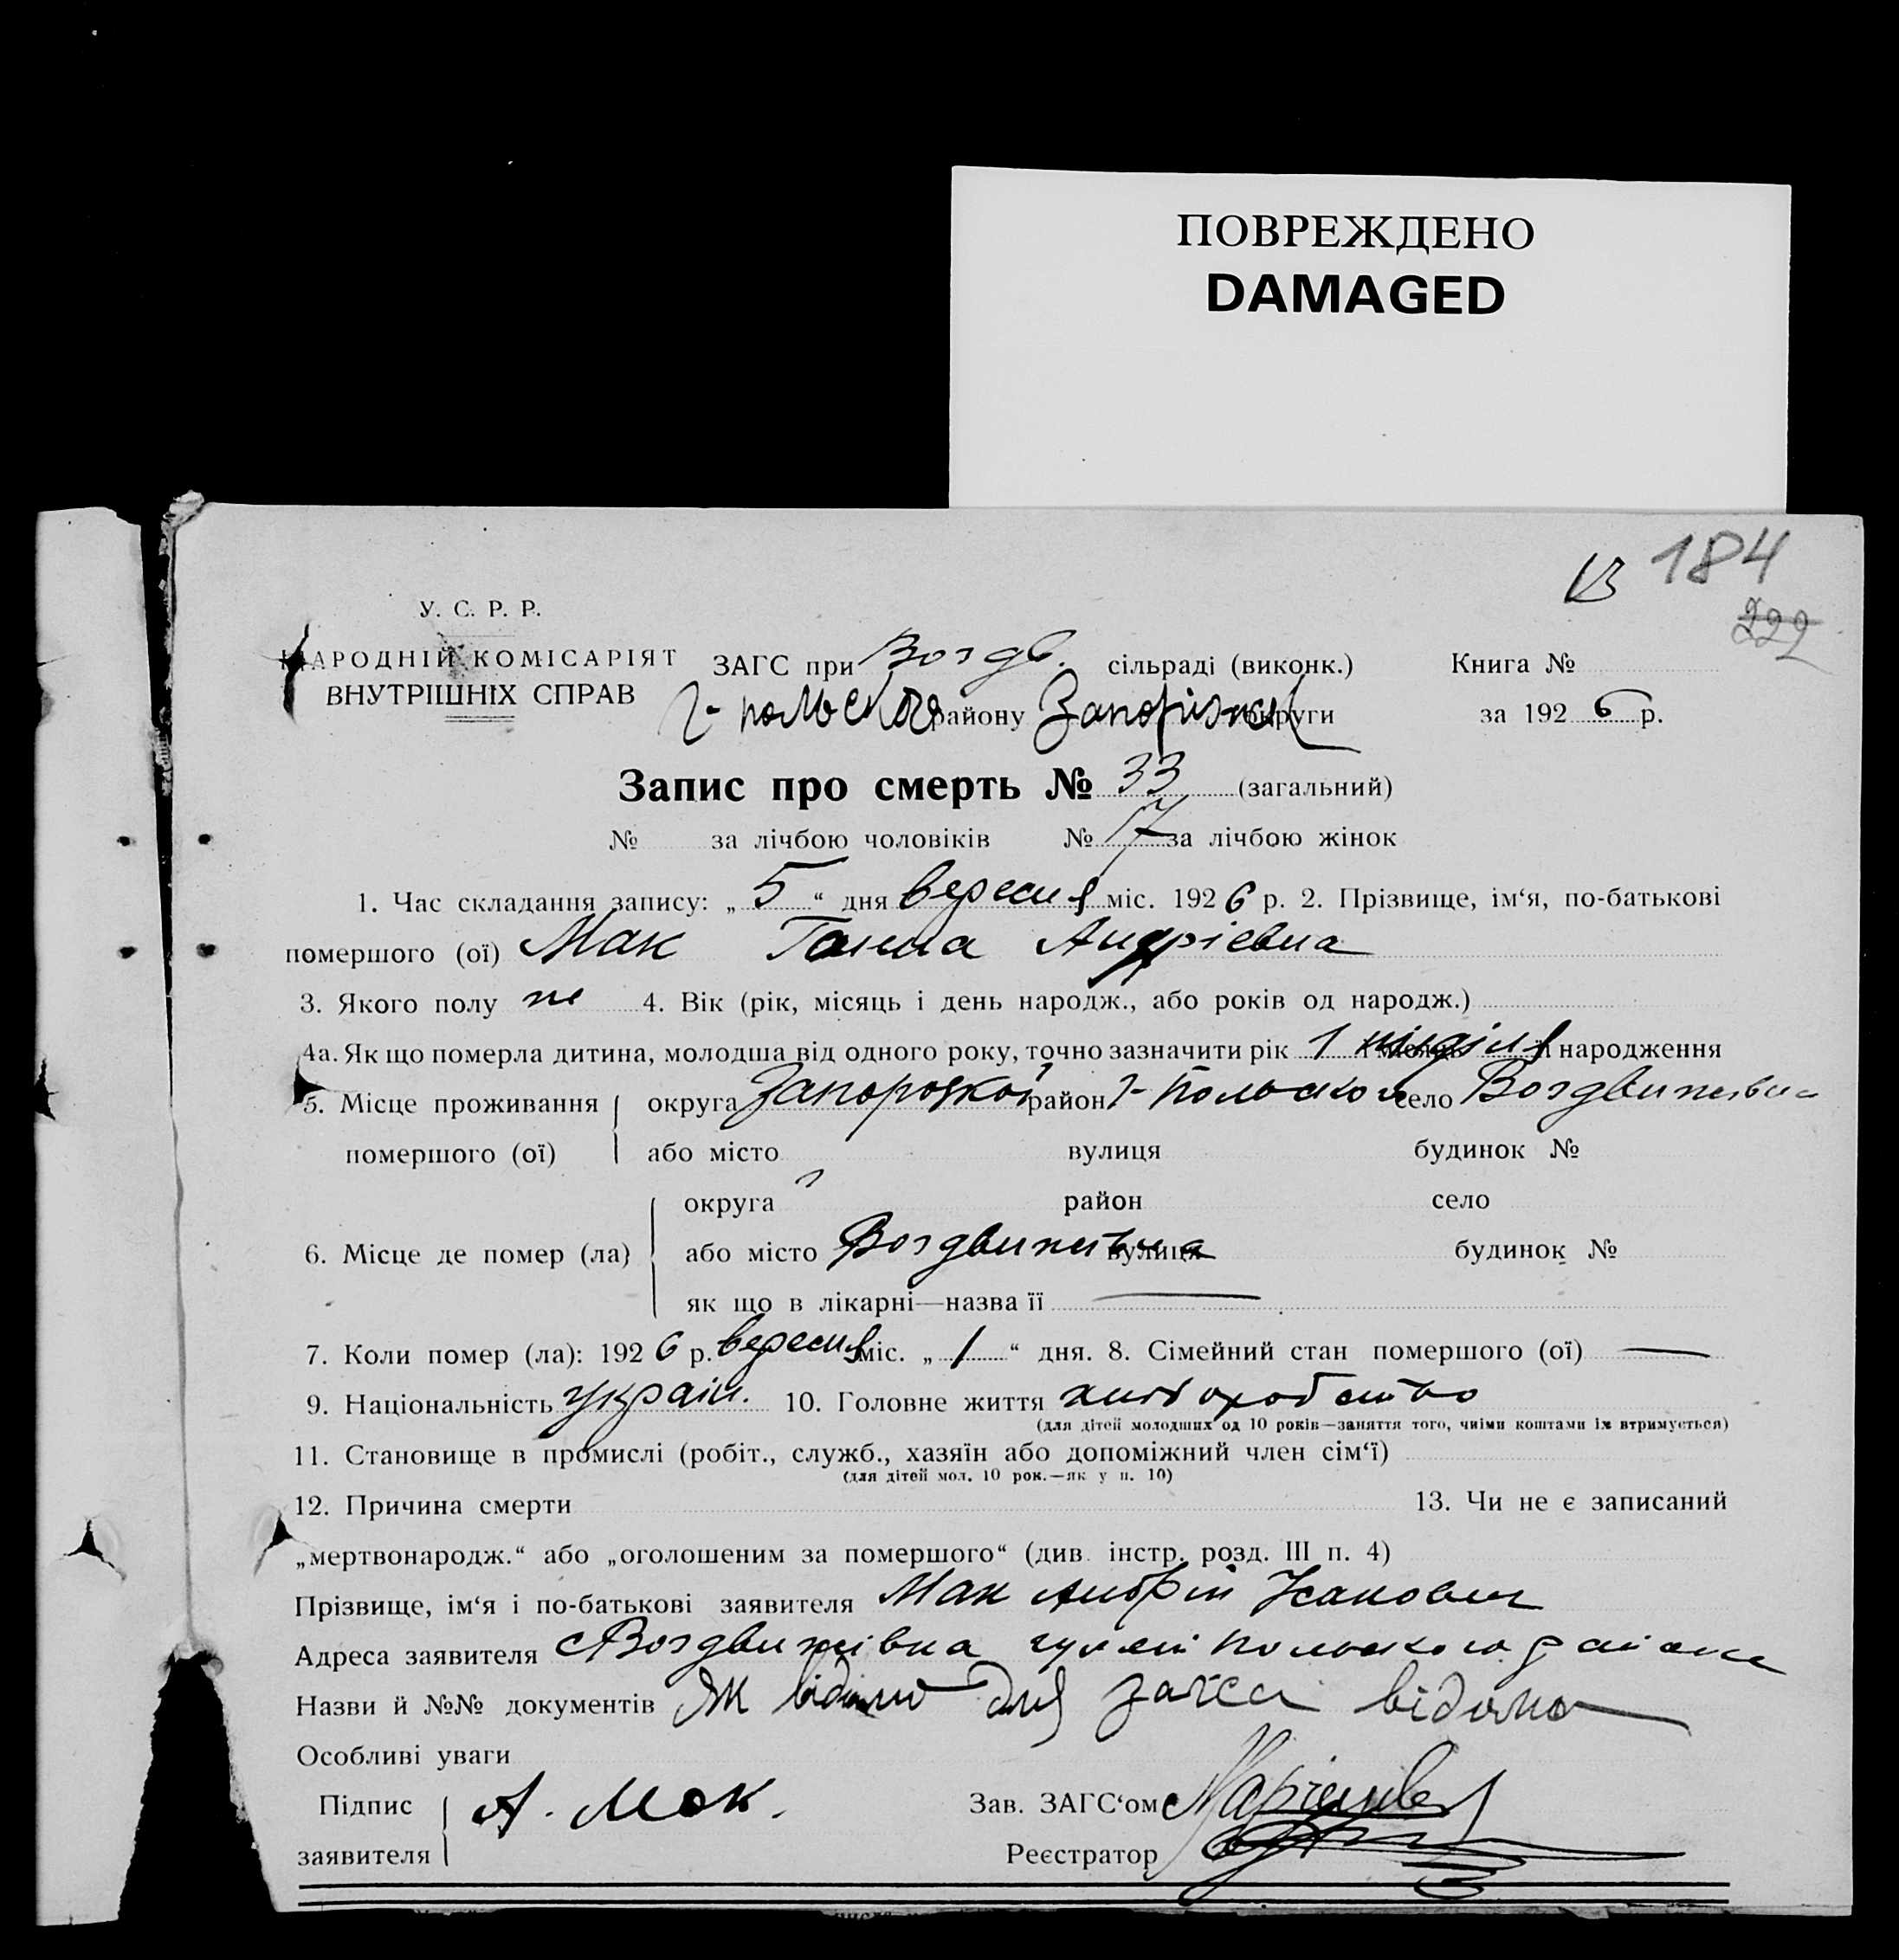 ПОВРЕЖДЕНО
DAMAGED
184
222
У. С. Р. Р.
НАРОДНІЙ КОМІСАРІЯТ
ВНУТРІШНІХ СПРАВ
ЗАГС при Воздв. сільраді (виконк.) Книга №
Г-польского району Запоріжск округи за 1926 р.
Запис про смерть № 33 (загальний)
№ за лічбою чоловіків № 17 за лічбою жінок
1. Час складання запису: „5“ дня вересня міс. 1926 р. 2. Прізвище, ім‘я, по-батькові
помершого (ої) Мак Ганна Андріевна
3. Якого полу же 4. Вік (рік, місяць і день народж., або років од народж.)
4а. Як що померла дитина, молодша від одного року, точно зазначити рік 1 неділя народження
5. Місце проживання помершого (ої) округа Запорозкої район Г-Польского село Воздвижівка
або місто вулиця будинок №
6. Місце де помер (ла) округа район село
або місто Воздвижівка вулиця будинок №
як що в лікарні—назва її —
7. Коли помер (ла): 1926 р. вересня міс. „1“ дня. 8. Сімейний стан помершого (ої) —
9. Національність україн. 10. Головне життя хліборобство
(для дітей молодших од 10 років—заняття того, чиїми коштами їх втримується)
11. Становище в промислі (робіт., служб., хазяїн або допоміжний член сім‘ї)
(для дітей мол. 10 рок.—як у п. 10)
12. Причина смерти 13. Чи не є записаний
„мертвонародж.“ або „оголошеним за помершого“ (див. інстр. розд. III п. 4)
Прізвище, ім‘я і по-батькові заявителя Мак Андрій Ісакович
Адреса заявителя с Воздвижівка гуляй Польского району
Назви й №№ документів Як відомо для загса відомо
Особливі уваги
Підпис заявителя А. Мак. Зав. ЗАГС‘ом
Реєстратор